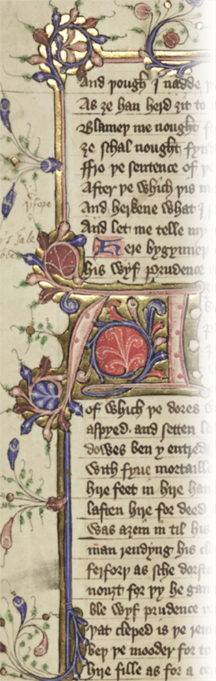 And þough I nadde
As ȝe han herd ȝit to
Blameþ me nought
ȝe schal nought fyn
ffro þe sentence of þ
After þe which þis m
And herkene what I
And let me telle my
Here bygynneþ
his wyf prudence
A
of which þe dores w
aspyed. and setten l
dowes ben y entred
With fyue mortaill
hire feet in hire han
laften hire for deed
Was aȝein in til his
man rendyng his cl
ferforþ as sche dorst
nouȝt for þy he gan
ble Wyf prudence r
þat cleped is þe rem
Wep þe mooder for to
hire fille as for a ce